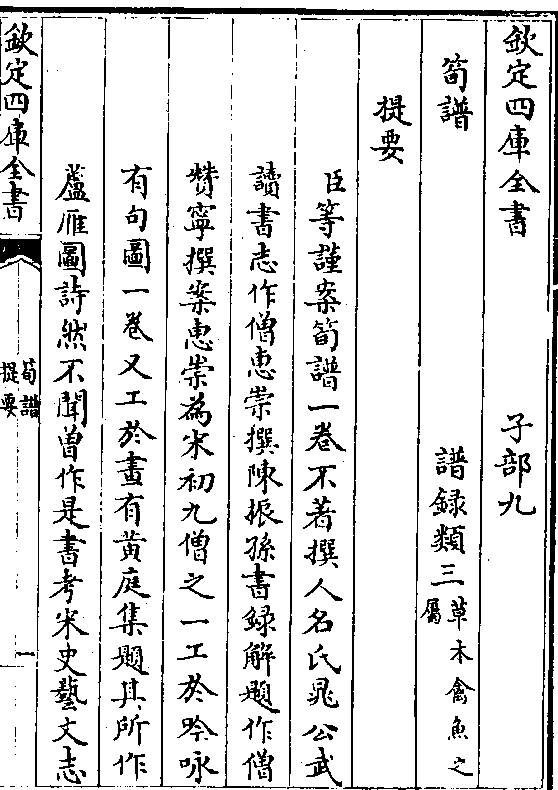 欽定四庫全書 子部九
筍譜 譜録類三草木禽魚之屬
提要
臣等謹案筍譜一卷不著撰人名氏晁公武
讀書志作僧惠崇撰陳振孫書録解題作僧
贊寧撰案惠崇為宋初九僧之一工於吟咏
有句圖一卷又工於畫有黄庭集題其所作
蘆雁圖詩然不聞曽作是書考宋史藝文志
欽定四庫全書 筍譜提要 一